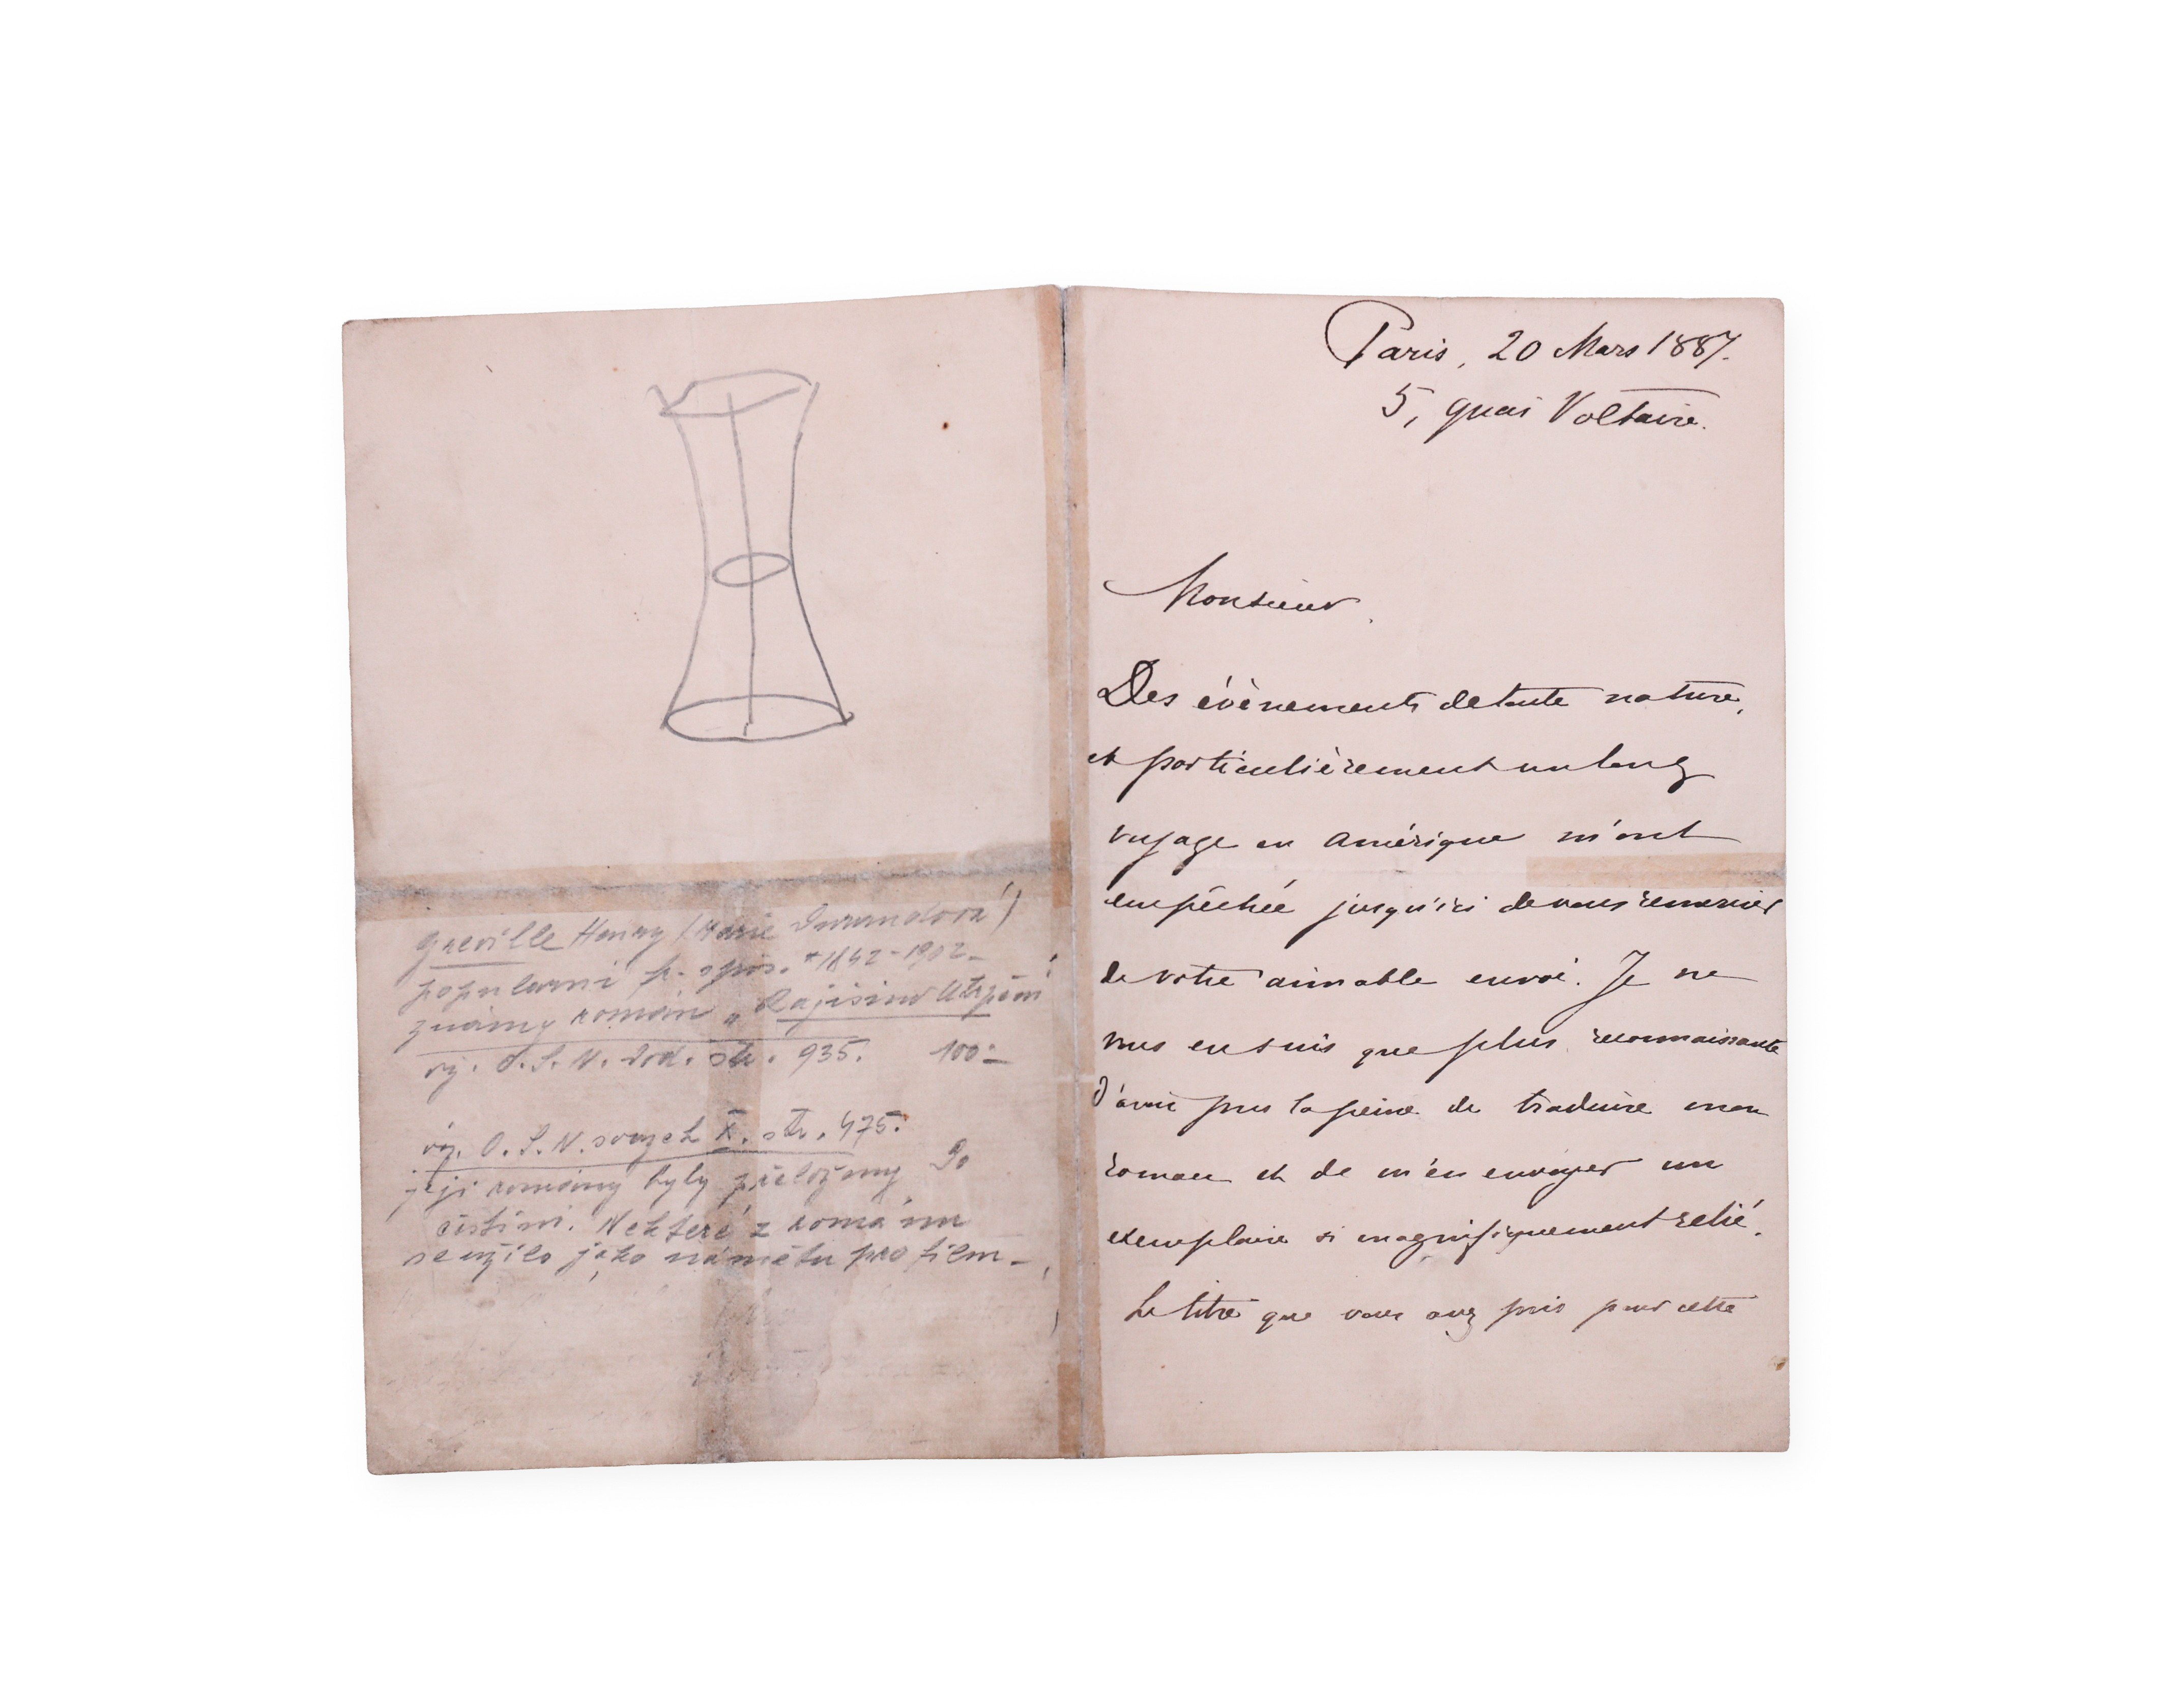 Greville Henry (Marie Durandová)
populární fr. spis. *1842-1902-
známý román „Rajisino Utrpení
viz. O.S.N. Dod. str. 935. 100:-
viz. O.S.N. svazek X. str. 475.
její romány byly přeloženy do
češtiny. Některé z románu
se užilo jako námětu pro film-
Paris, 20 Mars 1887.
5, quai Voltaire.
Monsieur,
Des évènements de toute nature,
et particulièrement un long
voyage en Amérique m'ont
empêchée jusqu'ici de vous remercier
de votre aimable envoi. Je ne
vous en suis que plus reconnaissante
d'avoir pris la peine de traduire mon
roman et de m'en envoyer un
exemplaire si magnifiquement relié.
Le titre que vous avez pris pour cette